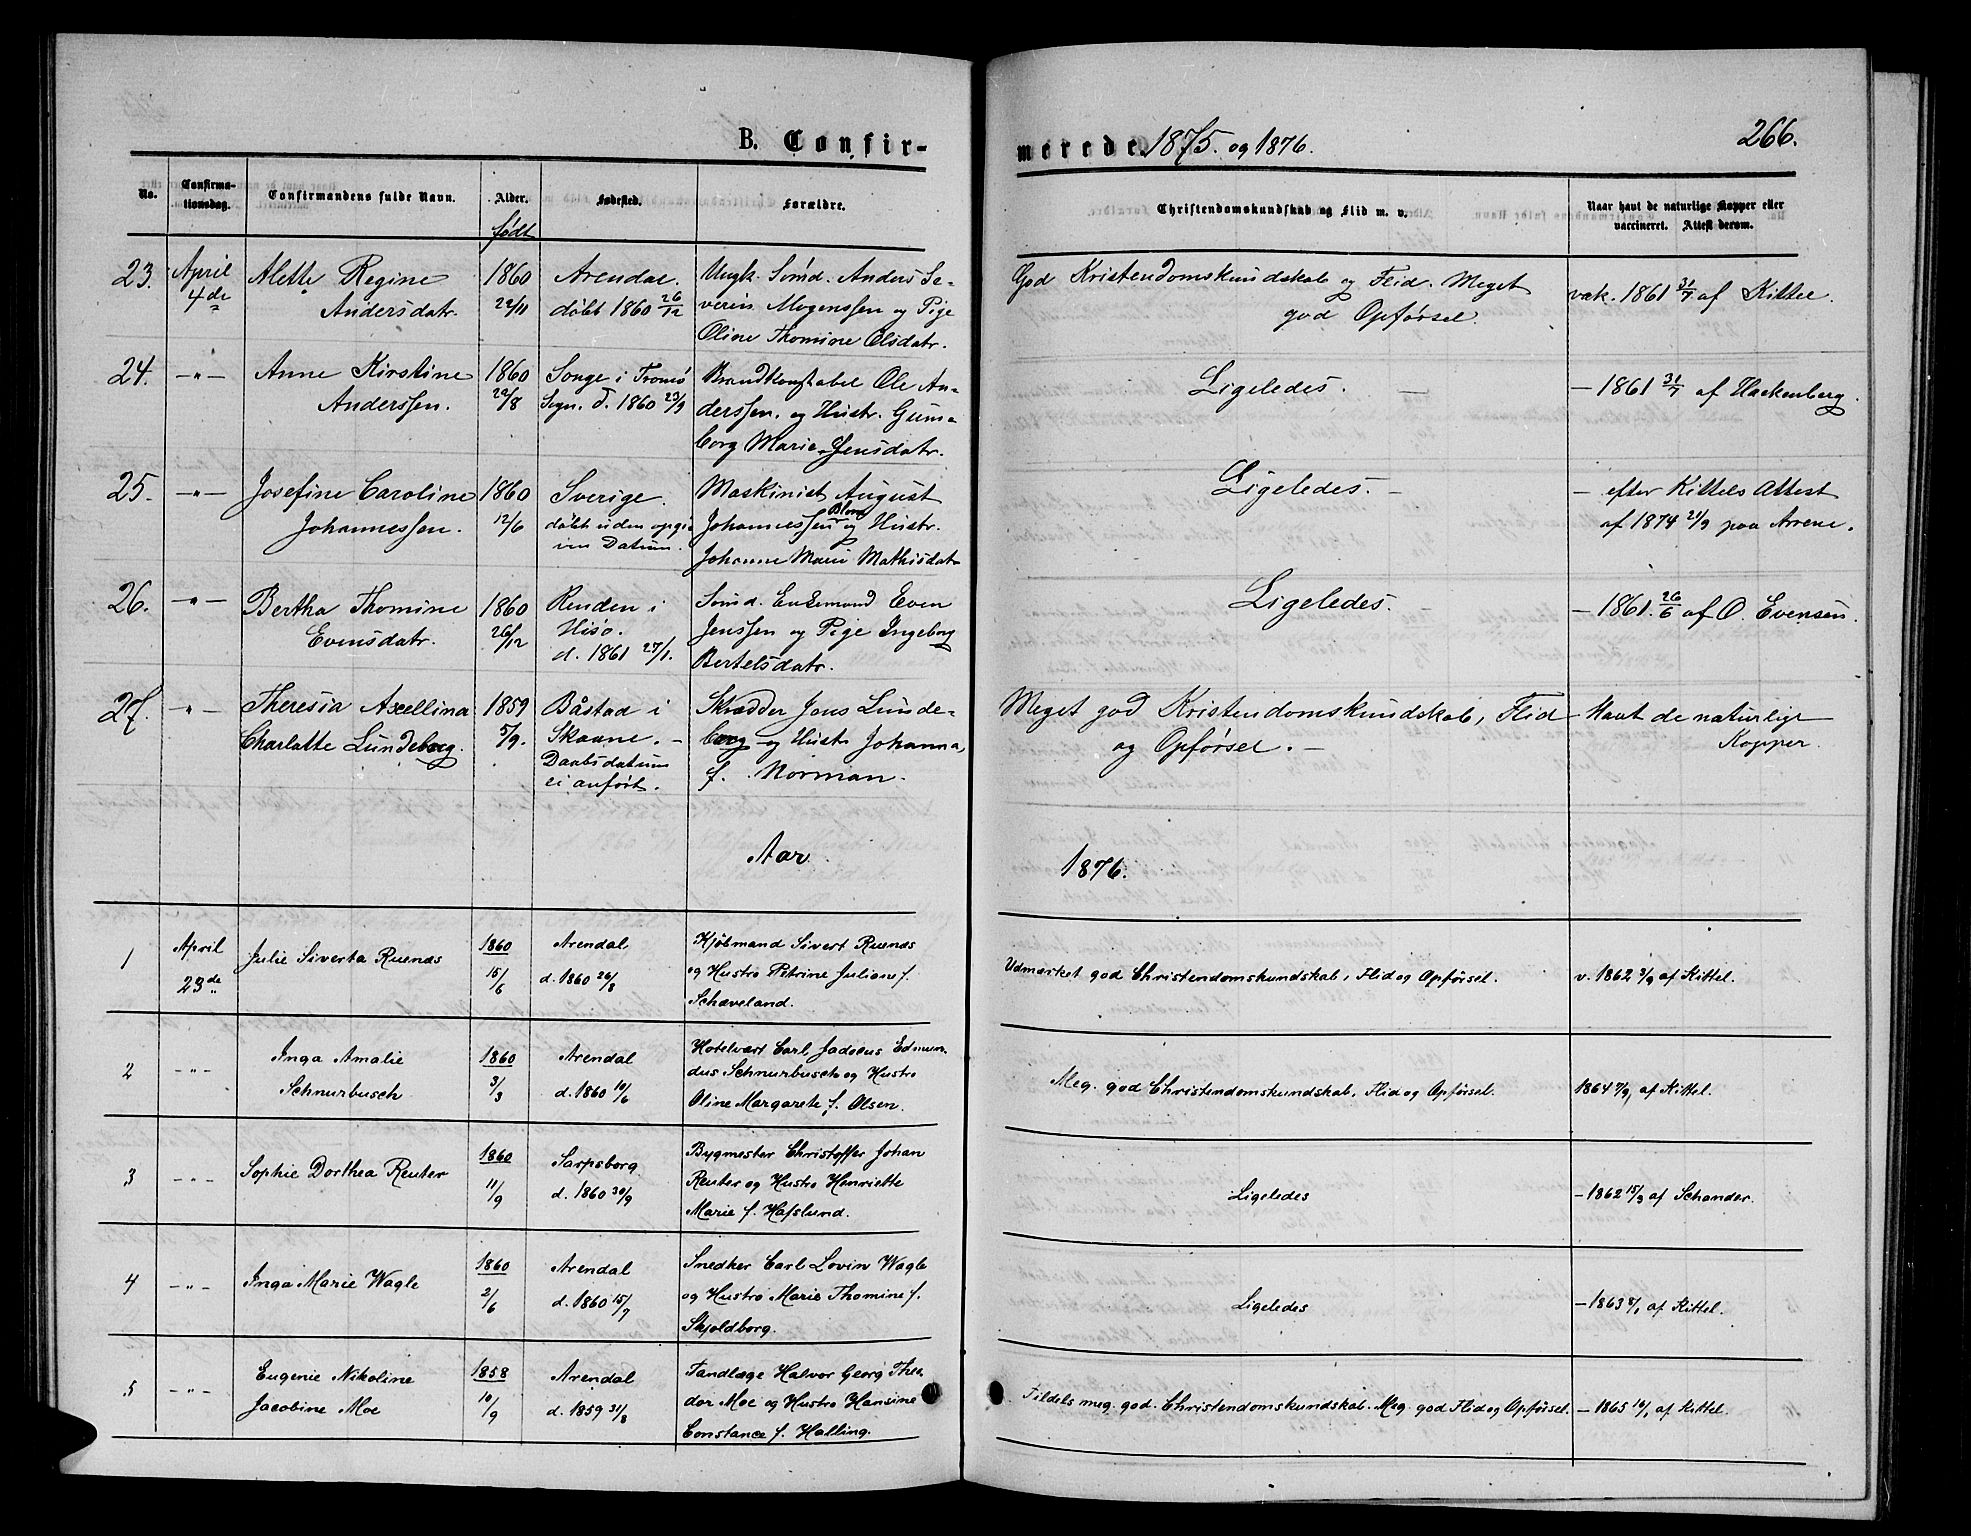 B. Confir-
merede. 1875. og 1876.
266.
No.
Confirma-
tionsdag.
Confirmandens fulde Navn.
Alder.
født
Fødested.
Forældre.
Christendomskundskab og Flid m. v.
Naar havt de naturlige Kopper eller
vaccineret. Attest derom.
23. April Alette Regine 1860 Arendal. Ungk. Sømd. Anders Se-
4de Andersdatr. 22/11 døbt 1860 26/12 verin Mogenssen og Pige
Oline Thomine Olsdatr.
God Kristendomskundskab og Flid. Meget
god Opførsel.
vak. 1861 31/7 af Kittel.
24. —"— Anne Kirstine 1860 Songe i Tromø Brandkonstabel Ole An-
Anderssen. 22/8 Sogn. d. 1860 23/9 derssen. og Hustr. Gun-
borg Marie Jensdatr.
Ligeledes. —
— 1861 31/7 af Hackenberg.
25. —"— Josefine Caroline 1860 Sverige. Maskinist August
Johannessen. 12/6 døbt uden opgi- Johannessen Blom og Hustr.
ven Datum. Johanne Marie Mathisdatr
Ligeledes. —
— efter Kittels Attest
af 1874 21/9 paa Arrene.
26. —"— Bertha Thomine 1860 Renden i Sømd. Enkemand Even
Evensdatr. 26/12 Hisø. Jenssen og Pige Ingeborg
d. 1861 27/1. Bertelsdatr.
Ligeledes.
— 1861. 26/6 af O. Evensen.
27. —"— Theresia Axellina 1859 Båstad i Skrædder Jons Lunde-
Charlotte Lundeberg. 5/9. Skaane. — berg og Hustr Johanna,
Daabsdatum f. Norman.
ei anført.
Meget god Kristendomskundskab, Flid
og Opførsel. —
Havt de naturlige
Kopper.
Aar
1876.
1 April Julie Siverta Ruenæs 1860 Arendal Kjøbmand Sivert Ruenæs
23de 15/6 d. 1860 26/8 og Hustro Petrine Juliane f.
Schæveland.
Udmærket god Christendomskundskab, Flid og Opførsel.
v. 1862 3/9 af Kittel.
2 —"— Inga Amalie 1860 Arendal Hotelvært Carl Jadoeus Edmun-
Schnurbusch 3/3 d. 1860 10/6 dus Schnurbusch og Hustro
Oline Margarete f. Olsen.
Meg. god Christendomskundskab, Flid og Opførsel.
1864 7/9, af Kittel.
3 —"— Sophie Dorthea Reuter 1860 Sarpsborg Bygmester Christoffer Johan
11/9 d. 1860 30/9 Reuter og Hustro Henriette
Marie f. Hafslund.
Ligeledes
— 1862 15/3 af Schander.
4 —"— Inga Marie Wagle 1860 Arendal Snedker Carl Lovin Wagle
2/6 d. 1860 15/7 og Hustro Marie Thomine f.
Skjoldborg.
Ligeledes
— 1863 8/1 af Kittel.
5 —"— Eugenie Nikoline 1858 Arendal Tandlæge Halvor Georg Theo-
Jacobine Moe 10/9 d. 1859 31/8 dor Moe og Hustro Hansine
Constance f. Halling.
Tildels meg. god. Christendomskundskab. Meg. god Flid og Opførsel.
— 1865 10/1 af Kittel.